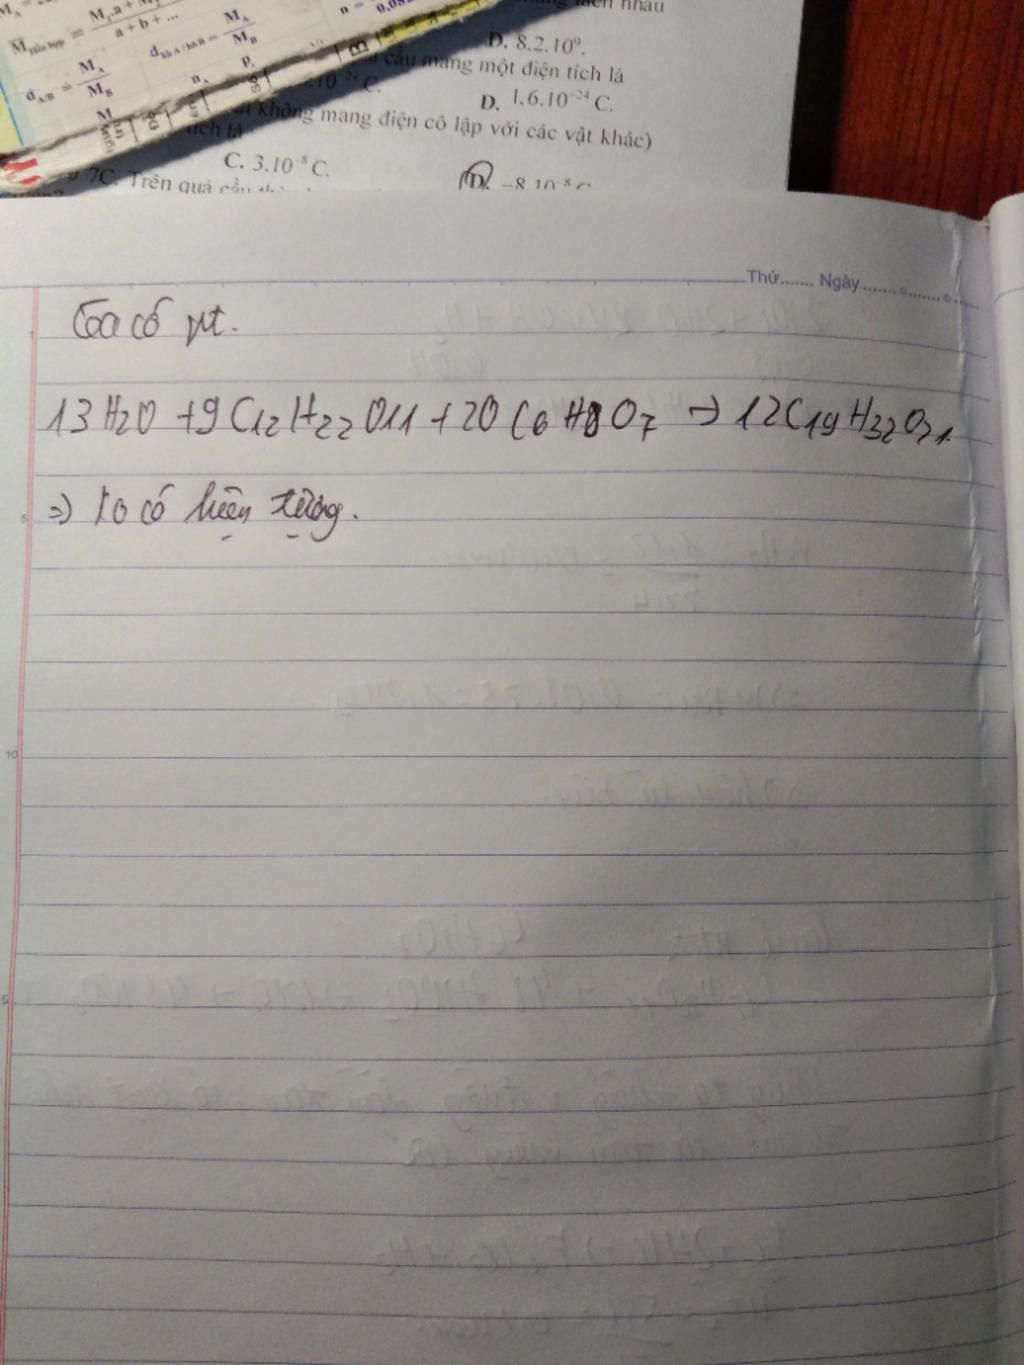 M Hỗn hợp = M₁a + M / a + b + ...
d hh A / hh B = M_A / M_B
d A/B = M_A / M_B
n = 
D. 8,2.10⁹.
cầu mang một điện tích là
.10⁻²⁴ C.
D. 1,6.10⁻²⁴ C.
không mang điện cô lập với các vật khác)
tích là
C. 3.10⁻⁸ C.
D. −8.10⁻⁸ C
7C. Trên quả cầu
Thứ....... Ngày
Ta có pt.
13 H2O + 9 C12H22O11 + 20 C6H8O7 → 12 C19H32O21.
⇒ Ko có hiện tượng.
5
10